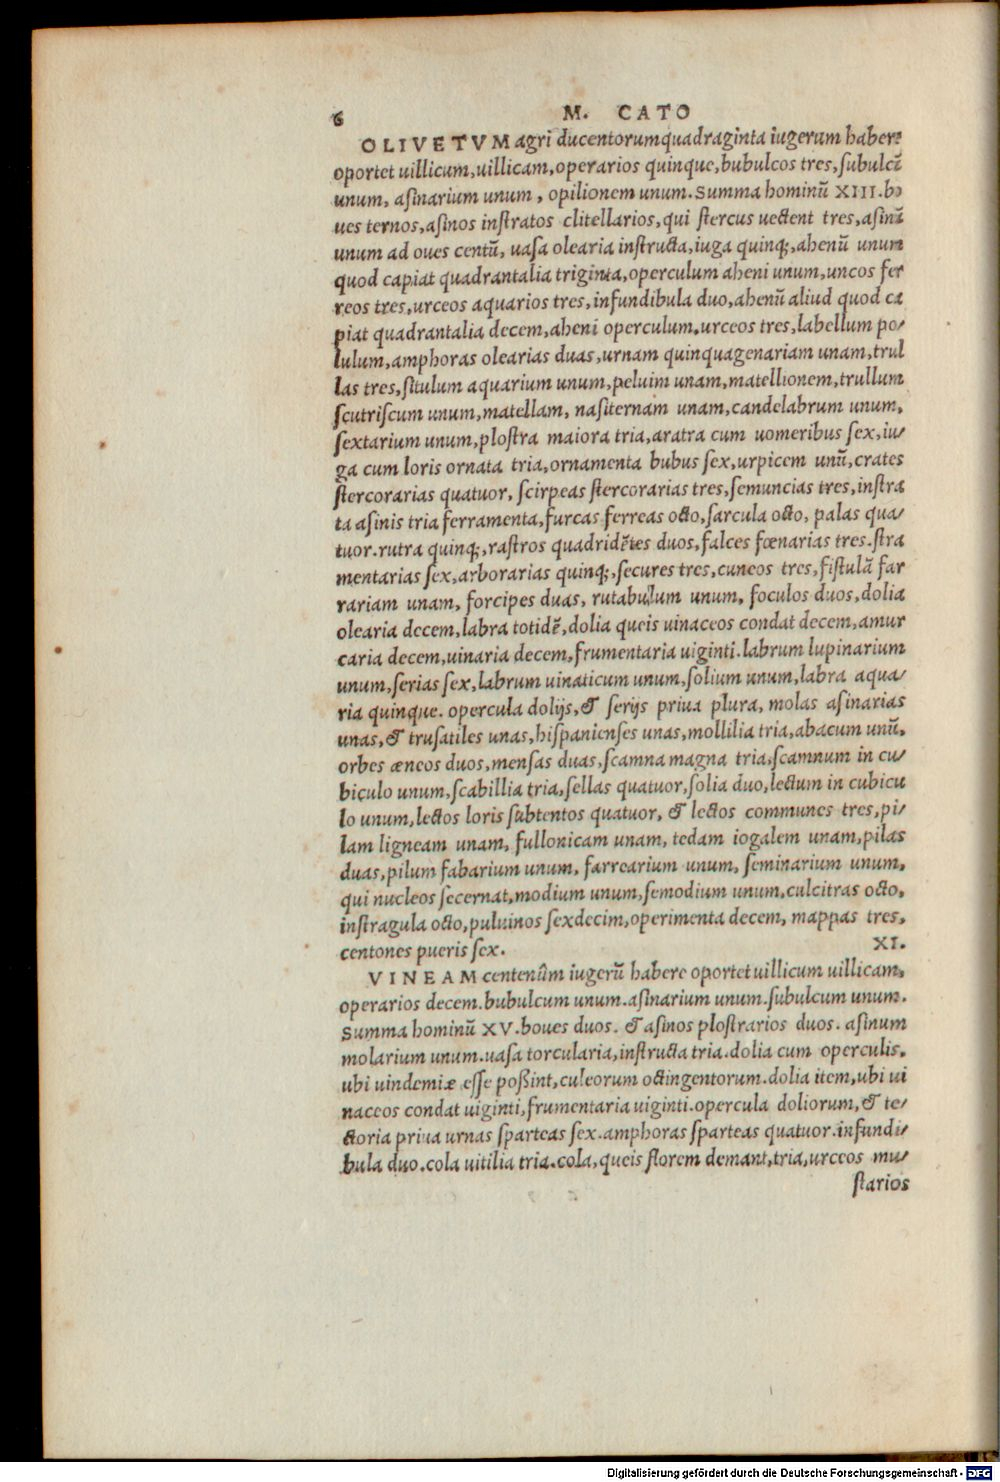 6 M. CATO
OLIVETVM agri ducentorumquadraginta iugerum habere
oportet uillicum,uillicam,operarios quinque,bubulcos tres,subulcū
unum, asinarium unum, opilionem unum.Summa hominū XIII.bo
ues ternos,asinos instratos clitellarios,qui stercus uectent tres,asinū
unum ad oues centū, uasa olearia instructa,iuga quinq;,ahenū unum
quod capiat quadrantalia triginta,operculum aheni unum,uncos fer
reos tres,urceos aquarios tres,infundibula duo,ahenū aliud quod ca
piat quadrantalia decem,aheni operculum,urceos tres,labellum po/
lulum,amphoras olearias duas,urnam quinquagenariam unam,trul
las tres,situlum aquarium unum,peluim unam,matellionem,trullum
scutriscum unum,matellam, nasiternam unam,candelabrum unum,
sextarium unum,plostra maiora tria,aratra cum uomeribus sex,iu/
ga cum loris ornata tria,ornamenta bubus sex,urpicem unū,crates
stercorarias quatuor, scirpeas stercorarias tres,semuncias tres,instra
ta asinis tria ferramenta,furcas ferreas octo,sarcula octo, palas qua/
tuor.rutra quinq;,rastros quadridētes duos,falces fœnarias tres.stra
mentarias sex,arborarias quinq;,secures tres,cuneos tres,fistulā far
rariam unam, forcipes duas, rutabulum unum, foculos duos,dolia
olearia decem,labra totidē,dolia queis uinaceos condat decem,amur
caria decem,uinaria decem,frumentaria uiginti.labrum lupinarium
unum,serias sex,labrum uinaticum unum,solium unum,labra aqua/
ria quinque. opercula dolijs,& serijs priua plura, molas asinarias
unas,& trusatiles unas,hispanienses unas,mollilia tria,abacum unū,
orbes æneos duos,mensas duas,scamna magna tria,scamnum in cu/
biculo unum,scabillia tria,sellas quatuor,solia duo,lectum in cubicu
lo unum,lectos loris subtentos quatuor, & lectos communes tres,pi/
lam ligneam unam, fullonicam unam, tedam iogalem unam,pilas
duas,pilum fabarium unum, farrearium unum, seminarium unum,
qui nucleos secernat,modium unum,semodium unum,culcitras octo,
instragula octo,puluinos sexdecim,operimenta decem, mappas tres,
centones pueris sex. XI.
VINEAM centenûm iugerū habere oportet uillicum uillicam,
operarios decem.bubulcum unum.asinarium unum.subulcum unum.
Summa hominū XV.boues duos. & asinos plostrarios duos. asinum
molarium unum.uasa torcularia,instructa tria.dolia cum operculis,
ubi uindemiæ esse poßint,culeorum octingentorum.dolia item,ubi ui
naceos condat uiginti,frumentaria uiginti.opercula doliorum,& te/
ctoria priua urnas sparteas sex.amphoras sparteas quatuor.infundi/
bula duo.cola uitilia tria.cola,queis florem demant,tria,urceos mu/
starios
Digitalisierung gefördert durch die Deutsche Forschungsgemeinschaft - DFG